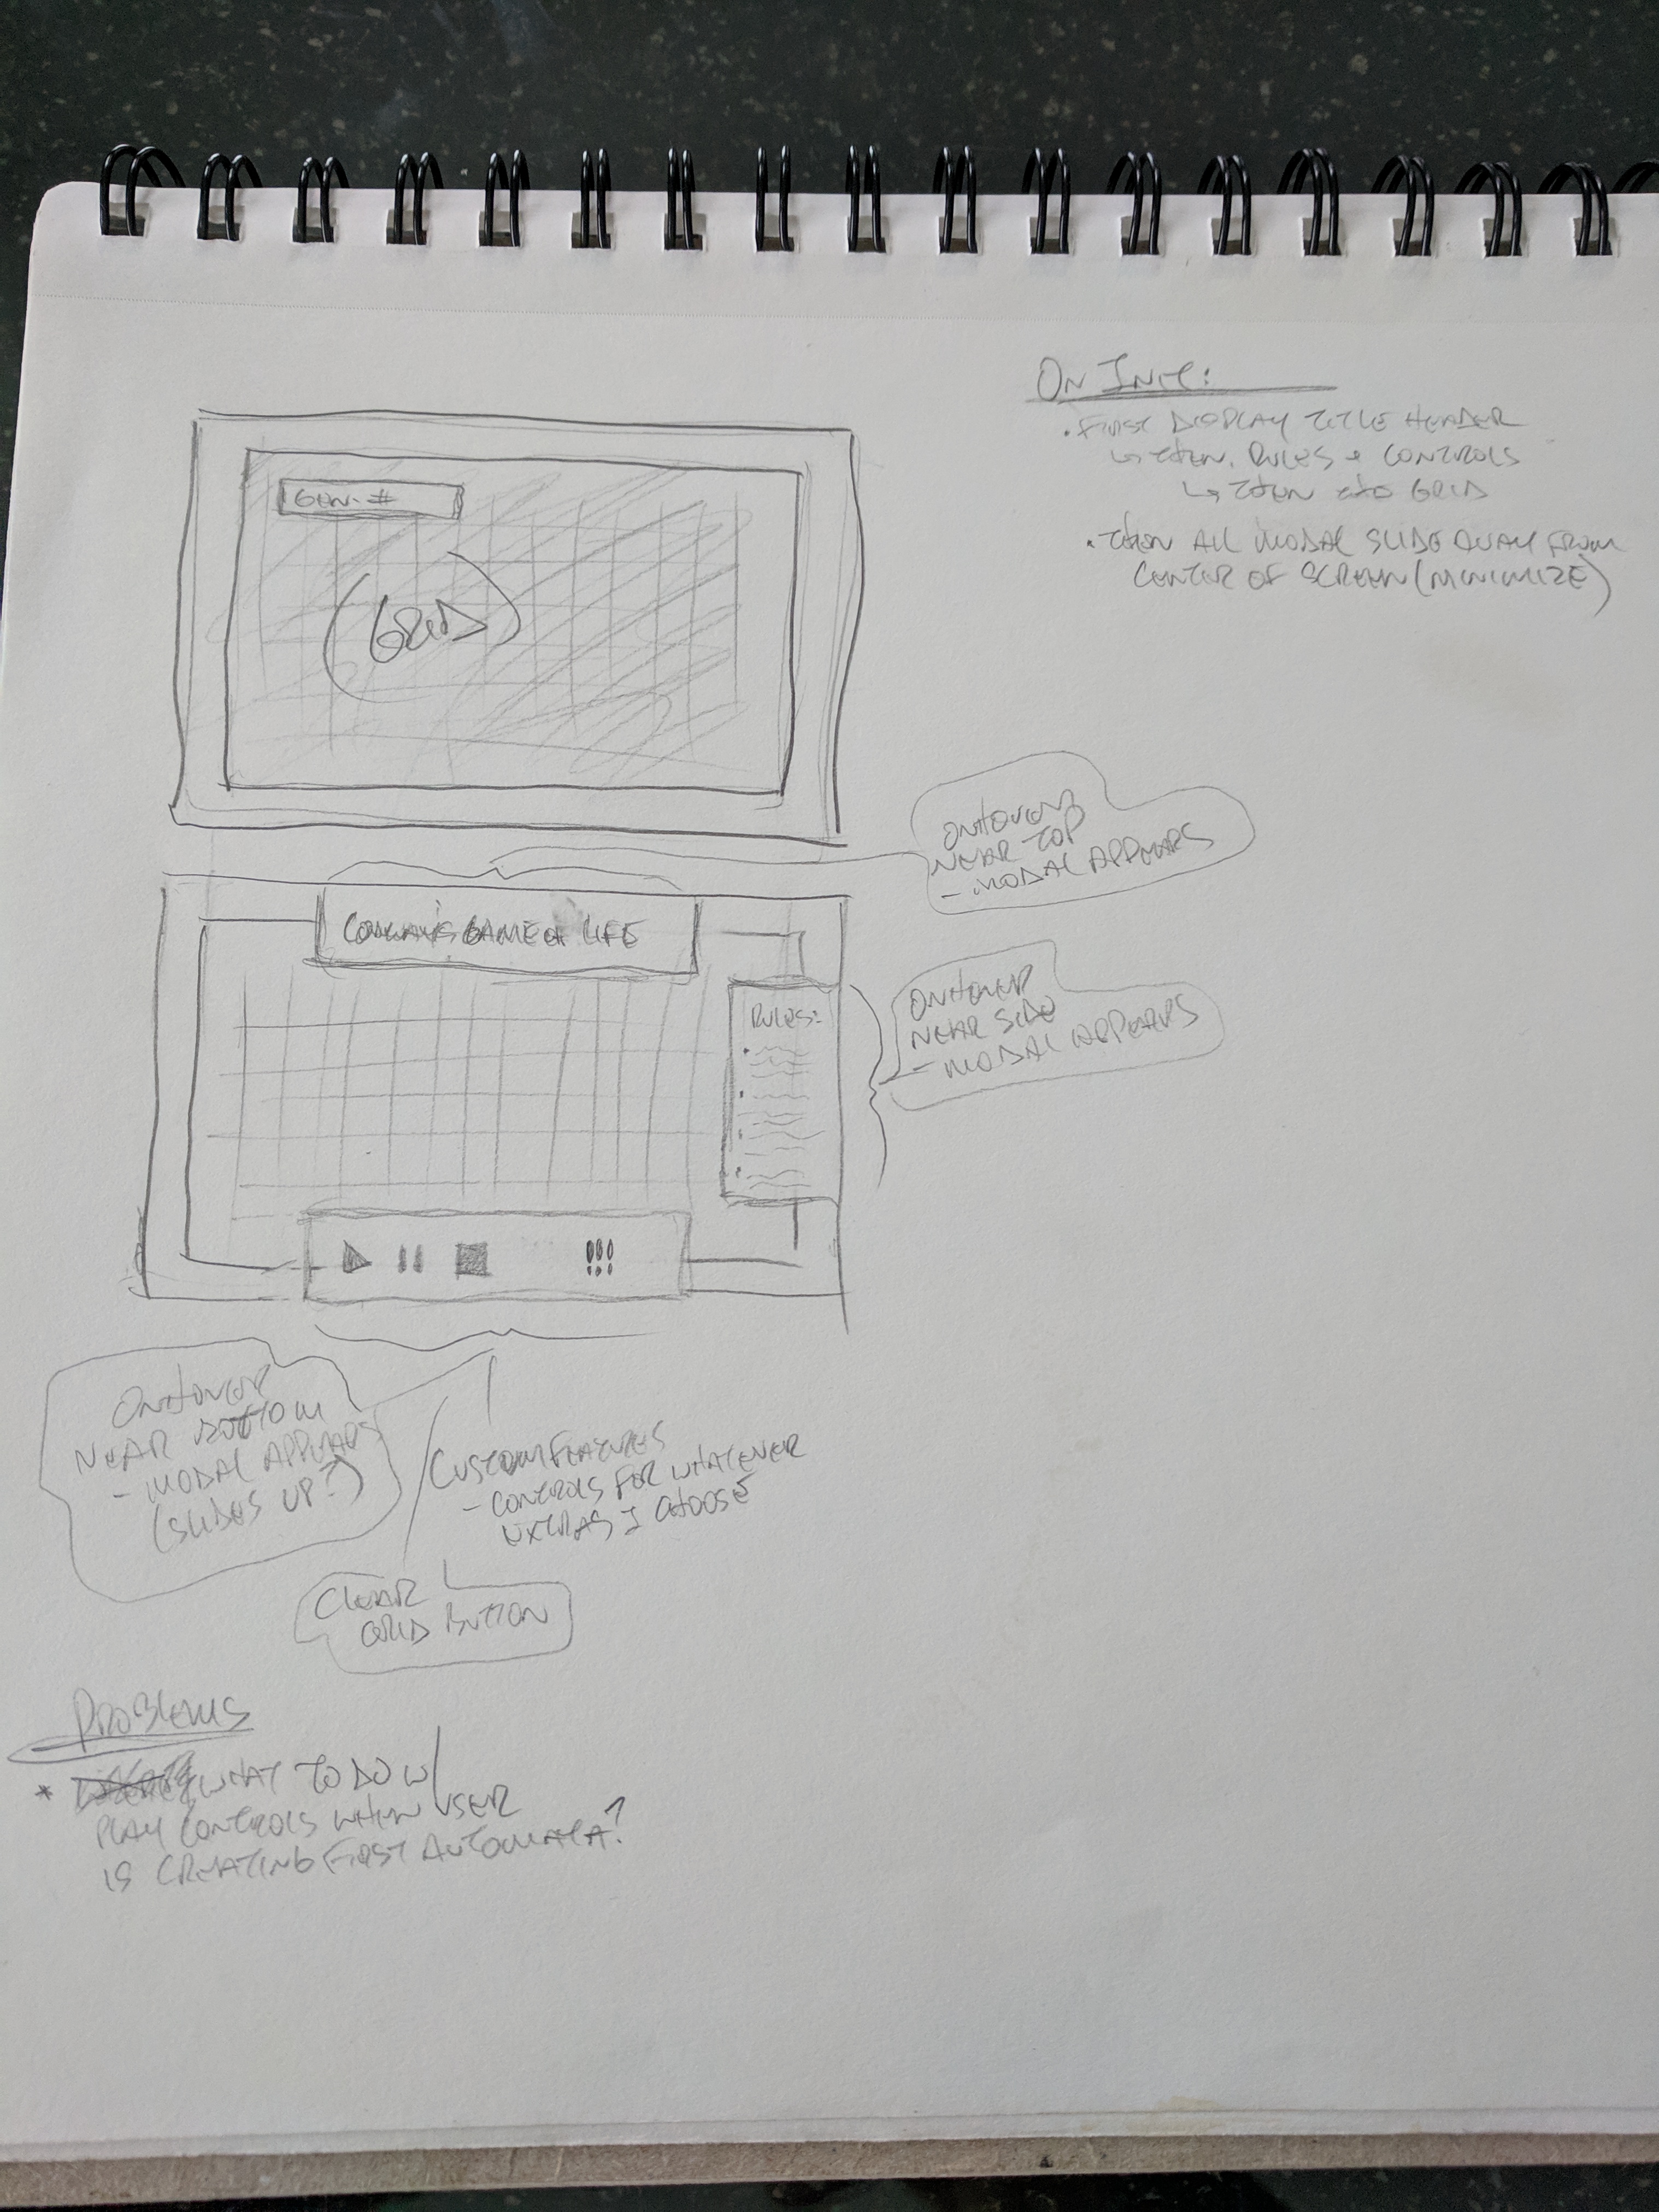 ON INIT:
• FIRST DISPLAY TITLE HEADER
↳ THEN RULES & CONTROLS
↳ THEN THE GRID
• THEN ALL MODAL SLIDE AWAY FROM
CENTER OF SCREEN (MINIMIZE)
GEN. #
(GRID)
ONHOVER
NEAR TOP
- MODAL APPEARS
CONWAY'S GAME OF LIFE
ONHOVER
NEAR SIDE
- MODAL APPEARS
RULES:
!!!
ONHOVER
NEAR BOTTOM
- MODAL APPEARS
(SLIDES UP?)
CUSTOM FEATURES
- CONTROLS FOR WHATEVER
EXTRAS I CHOOSE
CLEAR
GRID BUTTON
PROBLEMS
* WHAT TO DO W/
PLAY CONTROLS WHEN USER
IS CREATING FIRST AUTOMATA?